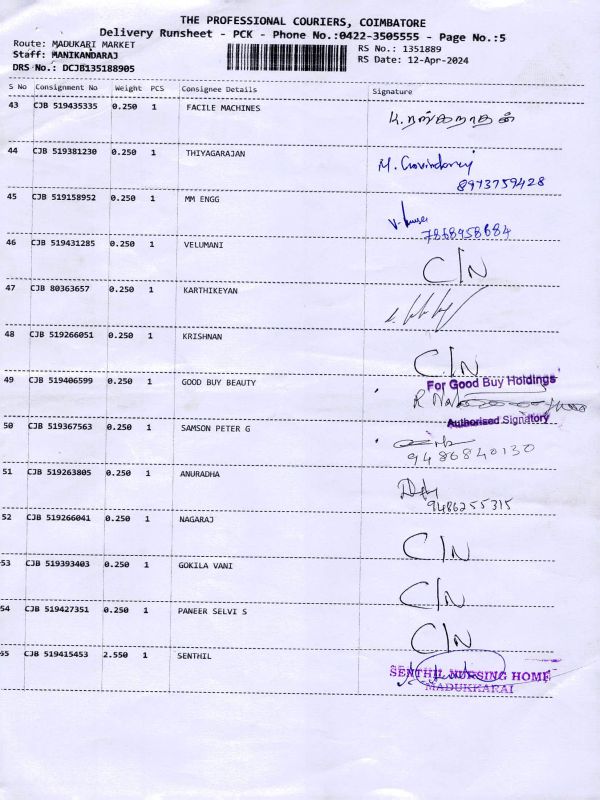 THE PROFESSIONAL COURIERS, COIMBATORE
Delivery Runsheet - PCK - Phone No.:0422-3505555 - Page No.:5
Route: MADUKARI MARKET
Staff: MANIKANDARAJ
DRS No.: DCJB135188905
RS No.: 1351889
RS Date: 12-Apr-2024
S No Consignment No Weight PCS Consignee Details Signature
43 CJB 519435335 0.250 1 FACILE MACHINES
44 CJB 519381230 0.250 1 THIYAGARAJAN
8973759428
45 CJB 519158952 0.250 1 MM ENGG
7868958684
46 CJB 519431285 0.250 1 VELUMANI C/N
47 CJB 80363657 0.250 1 KARTHIKEYAN
48 CJB 519266051 0.250 1 KRISHNAN C/N
49 CJB 519406599 0.250 1 GOOD BUY BEAUTY For Good Buy Holdings
Authorised Signatory
50 CJB 519367563 0.250 1 SAMSON PETER G
9486840130
51 CJB 519263805 0.250 1 ANURADHA
9486255315
52 CJB 519266041 0.250 1 NAGARAJ C/N
53 CJB 519393403 0.250 1 GOKILA VANI C/N
54 CJB 519427351 0.250 1 PANEER SELVI S C/N
55 CJB 519415453 2.550 1 SENTHIL SENTHIL NURSING HOME
MADUKKARAI